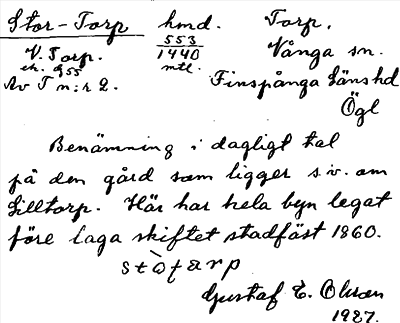 Stor-Torp hmd. Torp.
V. Torp. 553 Vånga sn.
ek. 955 1440
Av T n:r 2. mtl. Finspånga Länshd
Ögl
Benämning i dagligt tal
på den gård som ligger s.v. om
Lilltorp. Här har hela byn legat
före laga skiftet stadfäst 1860.
stòtarp
Gustaf E. Olsson
1927.